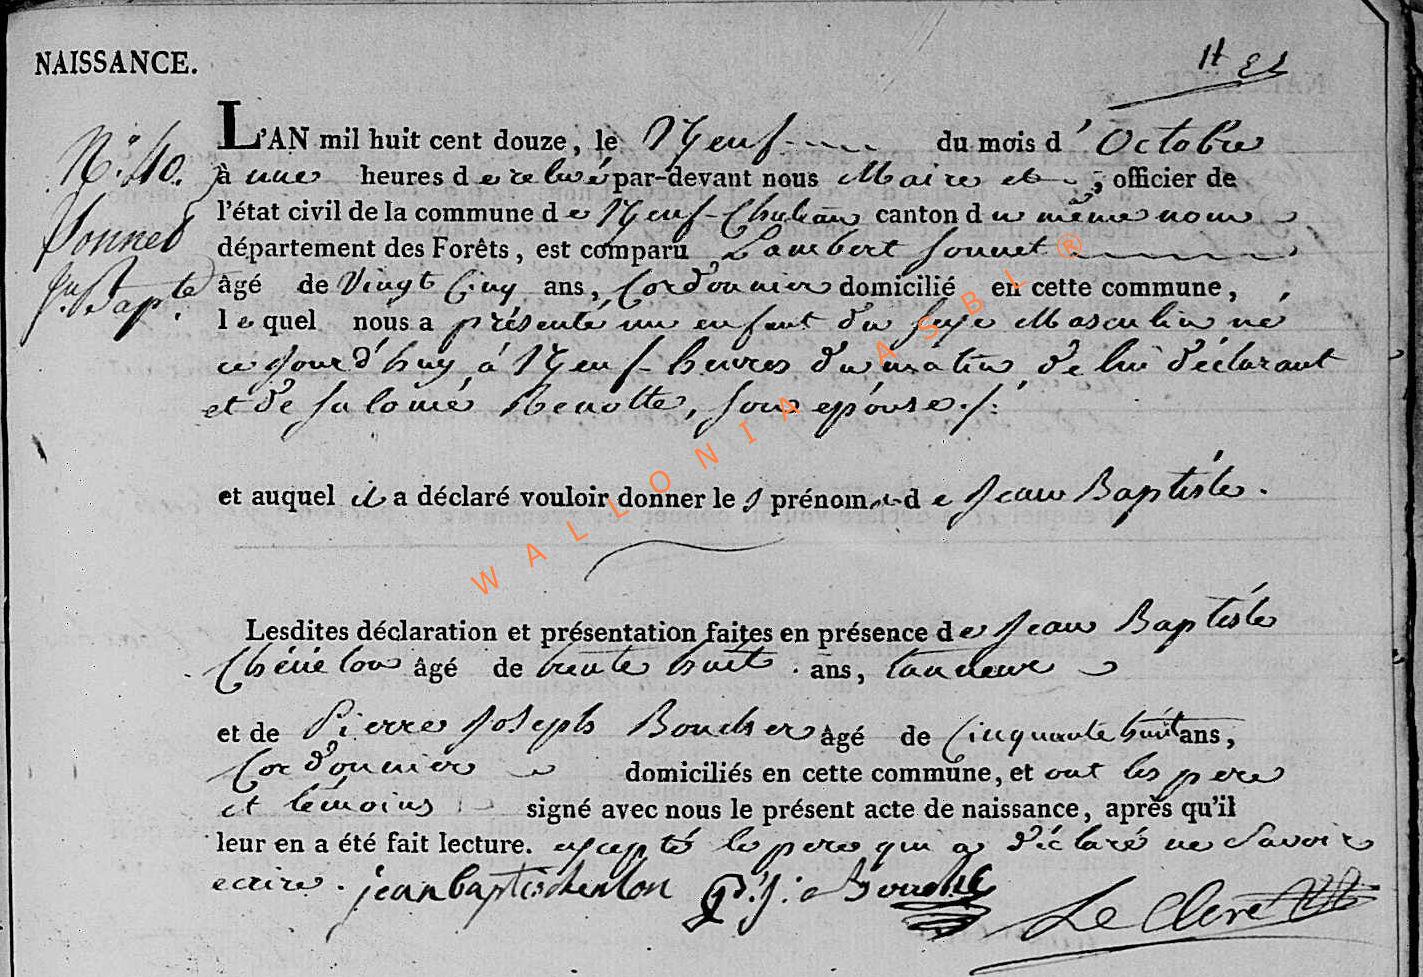 NAISSANCE.
N.° 40.
Sonnet
Jn Bapte
L'AN mil huit cent douze, le Neuf du mois d' Octobre
à une heures de relevé par-devant nous Maire et, officier de
l'état civil de la commune de Neuf-Chateau canton du même nom
département des Forêts, est comparu Lambert Sonnet
âgé de Vingt Cinq ans, Cordonnier domicilié en cette commune,
lequel nous a présenté un enfant du sexe Masculin né
ce jourd'huy à Neuf heures du matin de lui déclarant
et de Salomé Renotte, son epouse
et auquel il a déclaré vouloir donner les prénoms de Jean Baptiste.
Lesdites déclaration et présentation faites en présence de Jean Baptiste
âgé de trente huit ans, tanneur
et de Pierre Joseph Boucher âgé de Cinquante huit ans,
Cordonnier domiciliés en cette commune, et ont les pere
et témoins signé avec nous le présent acte de naissance, après qu'il
leur en a été fait lecture. excepté le pere qui a déclaré ne Savoir
ecrire.
jean baptiste
Le Clere
WALLONIA ASBL ®